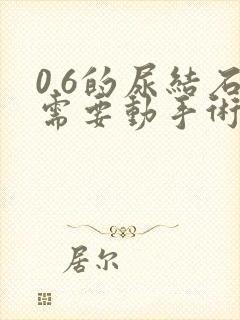 0.6的尿結石
需要動手術
居尔